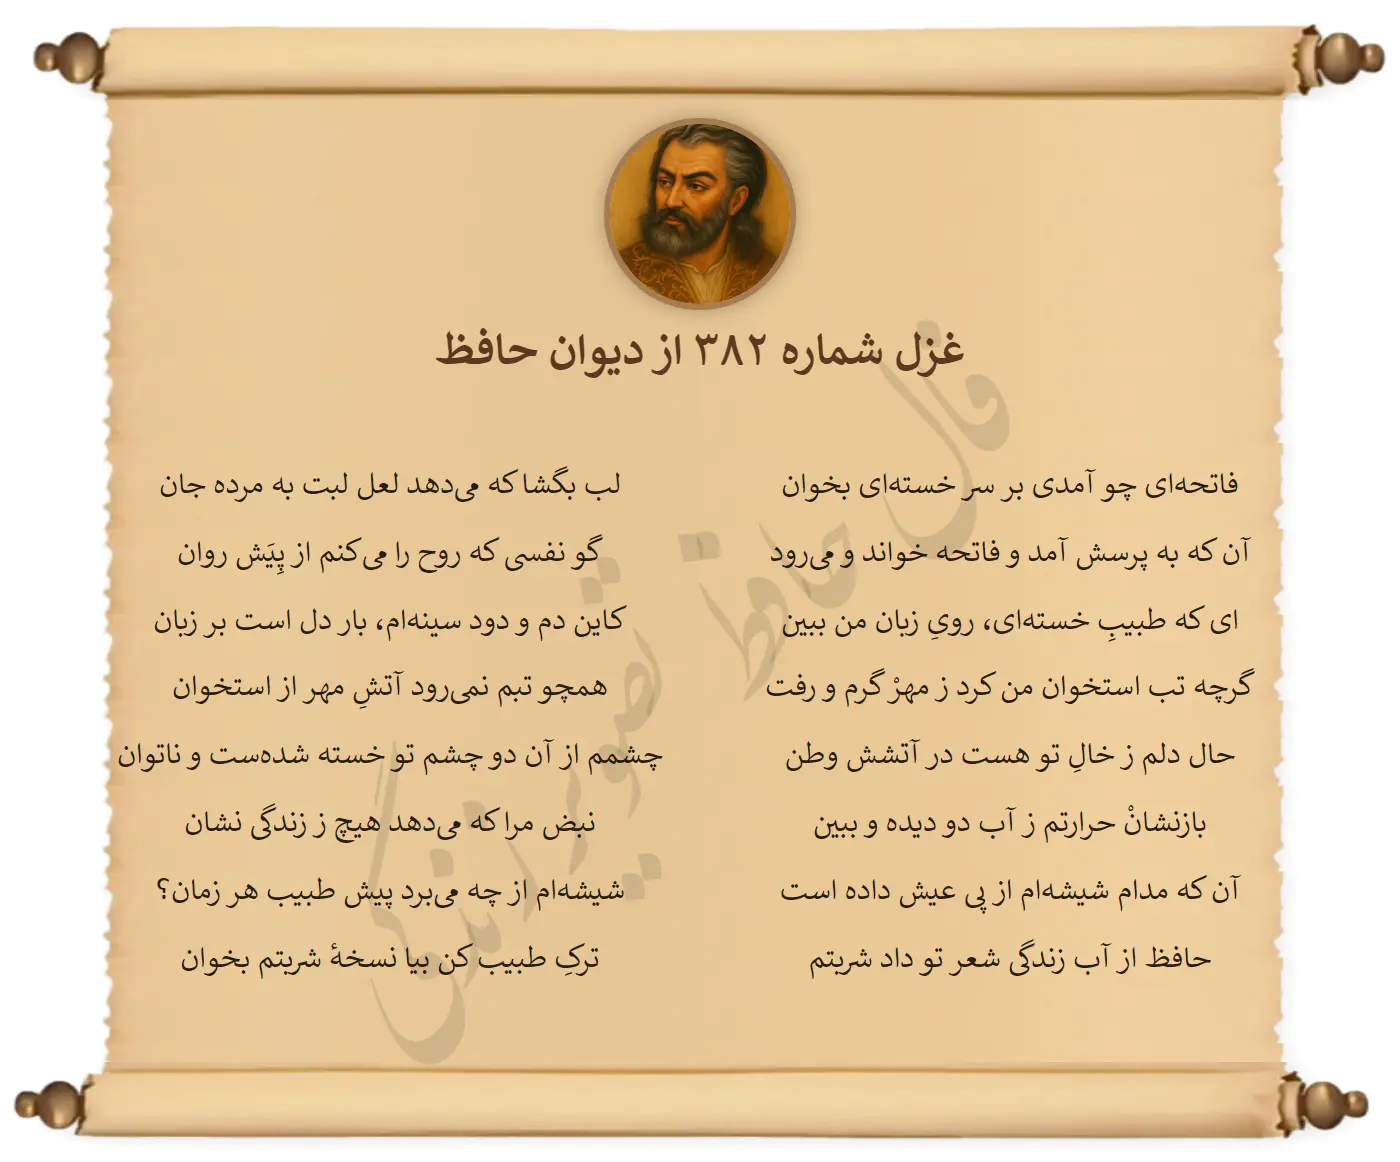 غزل شماره ۳۸۲ از دیوان حافظ
فاتحه‌ای چو آمدی بر سر خسته‌ای بخوان
لب بگشا که می‌دهد لعل لبت به مرده جان
آن که به پرسش آمد و فاتحه خواند و می‌رود
گو نفسی که روح را می‌کنم از پِیَش روان
ای که طبیبِ خسته‌ای، رویِ زبان من ببین
کاین دم و دود سینه‌ام، بار دل است بر زبان
گرچه تب استخوان من کرد ز مهرْ گرم و رفت
همچو تبم نمی‌رود آتشِ مهر از استخوان
حال دلم ز خالِ تو هست در آتشش وطن
چشمم از آن دو چشم تو خسته شده‌ست و ناتوان
بازنشانْ حرارتم ز آب دو دیده و ببین
نبض مرا که می‌دهد هیچ ز زندگی نشان
آن که مدام شیشه‌ام از پی عیش داده است
شیشه‌ام از چه می‌برد پیش طبیب هر زمان؟
حافظ از آب زندگی شعر تو داد شربتم
ترکِ طبیب کن بیا نسخهٔ شربتم بخوان
فال حافظ تصویر زندگی